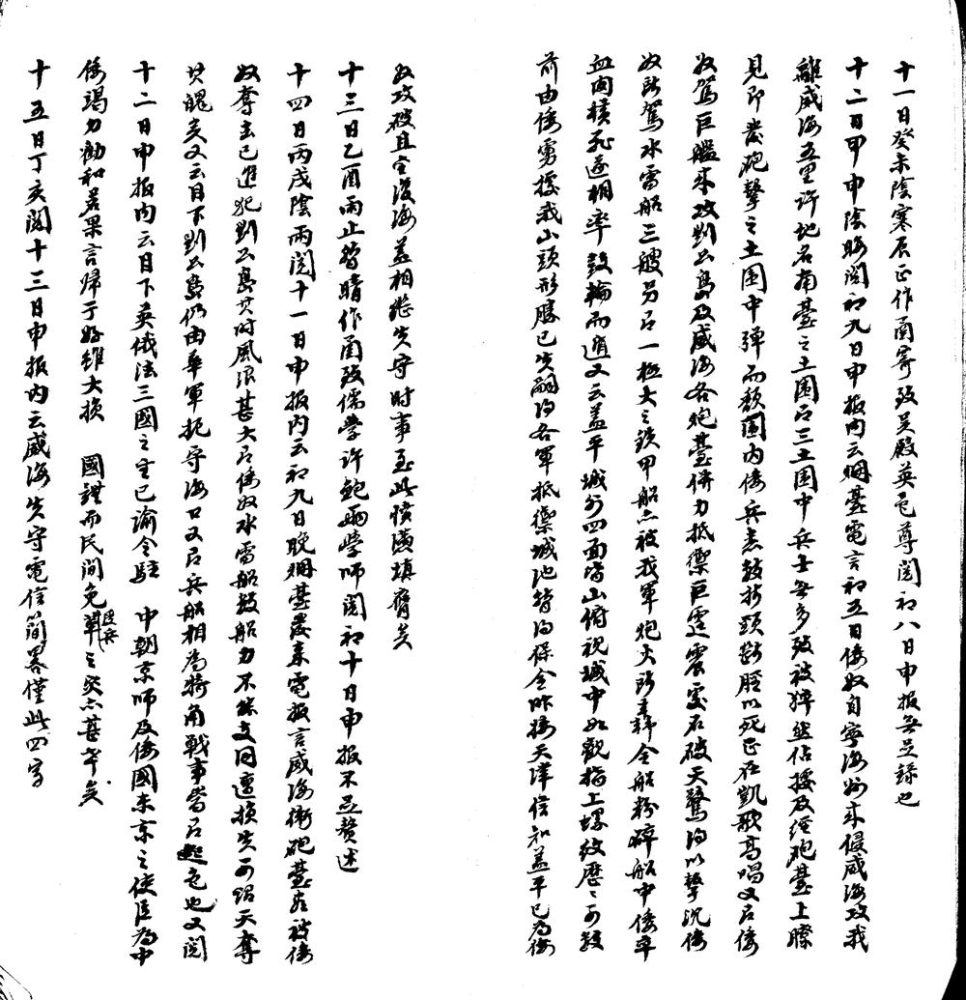 十一日癸未陰寒辰正作函寄致吳殿英邑尊閱初八日申报無足錄也
十二日甲申陰晦閱初九日申报內云烟臺電言初五日倭奴自寧海州来侵威海攻我
離威海五里許地名南臺之土圍凢三土圍中兵士無多致被猝然佔據及經炮臺上瞭
見即發砲擊之土圍中彈而頹圍內倭兵悉數折頸斷脰以死正在凱歌高唱又凢倭
奴駕巨艦来攻劉公島及威海各炮臺併力抵禦巨霆震處石破天驚沟以擊沉倭
奴所駕水雷船三艘另凢一極大之鉄甲船亦被我軍炮火所轟全船粉碎船中倭卒
血肉橫飛遂相率鼓輪而遁又云盖平城外四面皆山俯視城中如觀指上螺紋歷々可數
前由倭寇據我山頭形勝已失嗣沟各軍抵禦城池皆沟保全昨接天津信知盖平已為倭
奴攻破且它復海盖相繼失守時事至此憤懣填膺矣
十三日乙酉雨止答晴作函致儒學許鮑兩學師閱初十日申报不足贅述
十四日丙戌陰雨閱十一日申报內云初九日晚烟臺發来電报言威海衛砲臺有被倭
奴奪去已進犯劉公島其时風浪甚大凢倭奴水雷船数船力不能支同遭損失可謂天奪
其魄矣又云目下劉公島仍由華軍扼守海口又凢兵船相為犄角戰事當凢起色也又閱
十二日申报內云目下英俄法三國之主已諭令駐 中朝京师及倭國东京之使臣為中
倭竭力勸和若果言歸于好雖大損 國體而民間免罹兵之災亦甚幸矣
十五日丁亥閱十三日申报內云威海失守電信簡略僅此四字